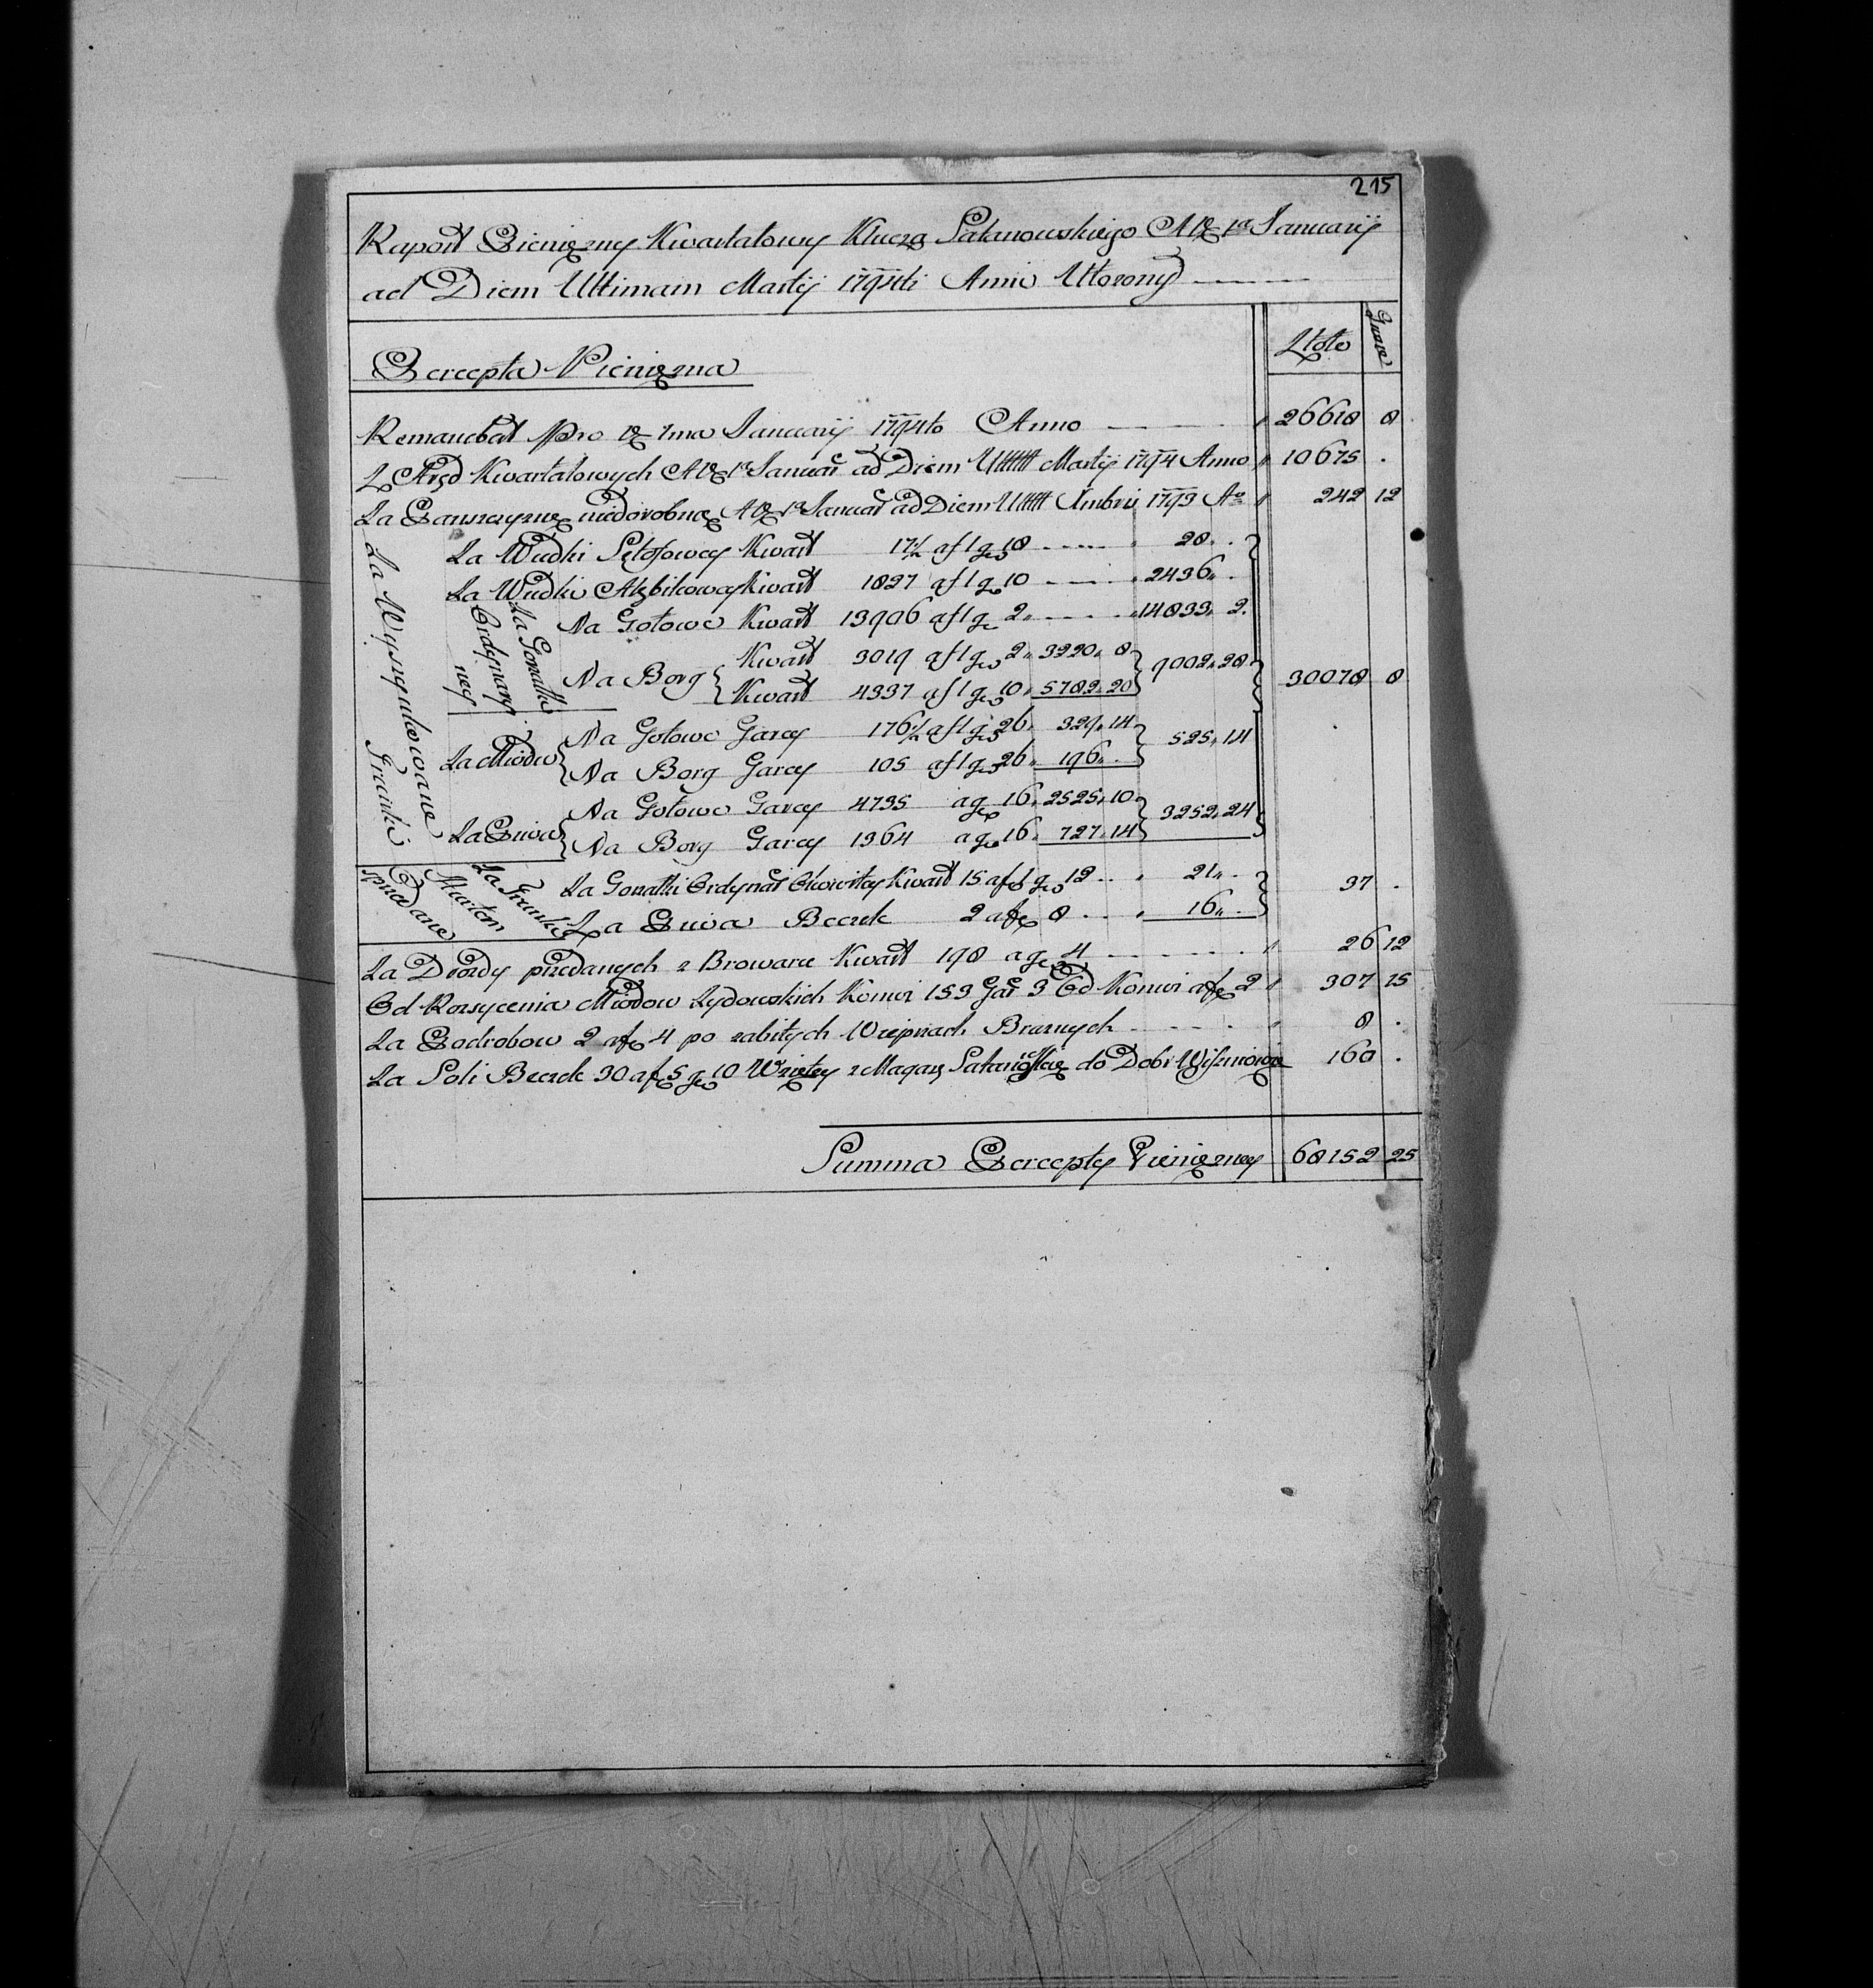 215
Raport Pieniężny Kwartałowy Klucza Satanowskiego A D 1a Januarij
ad Diem Ultimam Martij 1794ti Anni Ułożony
Złote Grosze
Percepta Pieniężna
Remanebat pro D 1ma Januarij 1794to Anno 26618 8
Z Aręd Kwartałowych A D 1a Januar ad Diem Ultt Martij 1794 Anno 10675 .
Za Panszczyznę niedorobną A D 1a Januar ad Diem Ultt Xmbris 1793 Ao 242 12
Za Wyszynkowane Trunki
Za Wudki Kwart 17½ a f 1 g 18 28 .
Za Wudki Alębikowey Kwart 1827 a f 1 g 10 2436 .
Za Gorzałki Ordynaryi ney
Na Gotowe Kwart 13906 a f 1 g 2 14833 2
Na Borg Kwart 3019 a f 1 gr 2 3220 8 9002 28 30078 8
Kwart 4337 a f 1 gr 10 5782 20
Za Miodu Na Gotowe Garcy 176½ a f 1 g 26 329 14 525 14
Na Borg Garcy 105 a f 1 g 26 196 .
Za Piwa Na Gotowe Garcy 4735 a g 16 2525 10 3252 24
Na Borg Garcy 1364 a g 16 727 14
Za Trunki Hurtem przedane
Za Gorzałki Ordynar Okowitey Kwart 15 a f 1 g 12 21 . 37 .
Za Piwa Beczek 2 a f 8 16 .
Za Drożdży przedanych z Browaru Kwart 198 a g 4 26 12
Od Rozsycenia Miodow Żydowskich Konwi 153 Gar 3 Od Konwi a f 2 307 15
Za Podrobow 2 a f 4 po zabitych Wieprzach Braznych 8 .
Za Soli Beczek 30 a f 5 g 10 Wziętey z Magaz Satanowskie do Dobr 160 .
Summa Percepty Pieniężney 68152 25